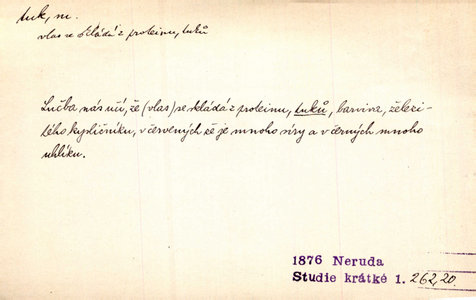 tuk, m.
vlas se skládá z proteinu, tuků
Lučba nás učí, že (vlas) se skládá z proteinu, tuků, barviva, železi-
tého kysličníku, v červených že je mnoho síry a v černých mnoho
uhlíku.
1876 Neruda
Studie krátké 1. 262,20.